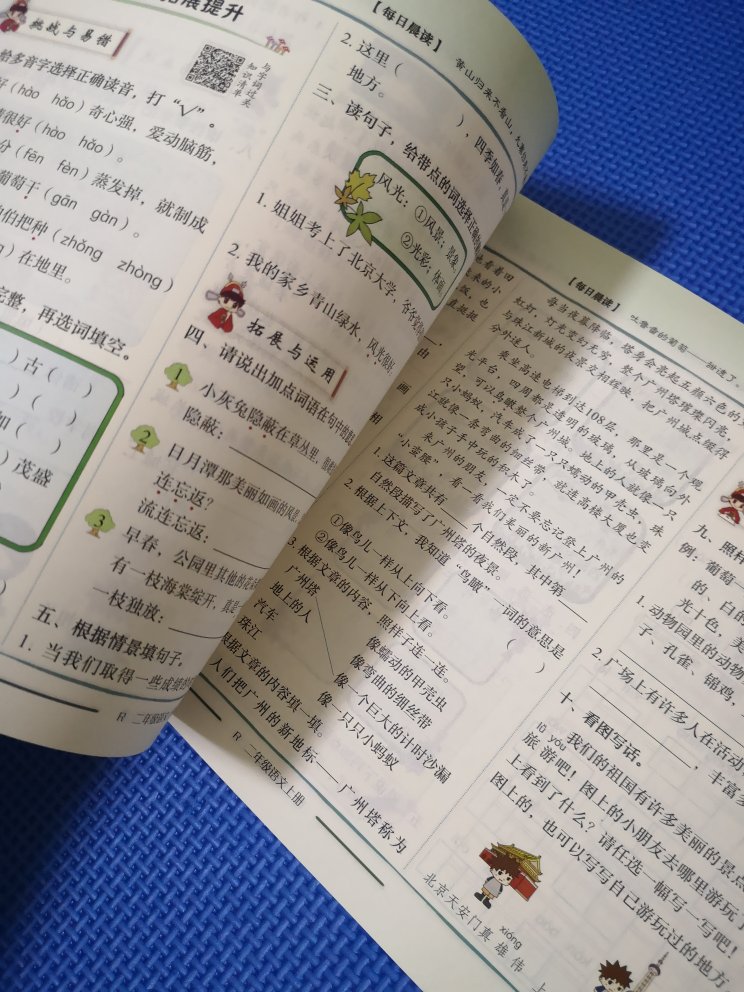 拓展提升
挑战与易错
与字词过关
知识清单
给多音字选择正确读音，打“√”。
好(hào hǎo)奇心强，爱动脑筋，
很好(hào hǎo)。
分(fēn fèn)蒸发掉，就制成
葡萄干(gān gàn)。
伯把种(zhǒng zhòng)
)在地里。
完整，再选词填空。
)古( )
( )
加( )
)茂盛
【每日晨读】
黄山归来不看山，
2. 这里(
地方。
)，四季如春，
三、读句子，给带点的词选择正确的
风光：①风景；景象。
②光彩；体面。
1. 姐姐考上了北京大学，爷爷
2. 我的家乡青山绿水，风光很
拓展与运用
四、请说出加点词语在句中的意思
1 小灰兔隐蔽在草丛里，
隐蔽：
2 日月潭那美丽如画的风景，
连忘返？
流连忘返：
3 早春，公园里其他的花
有一枝海棠绽开，真是
一枝独放：
五、根据情景填句子，
1. 当我们取得一些成绩
R 二年级语文
着田
来的小
饭，也
直挺挺
由
画
相
【每日晨读】
吐鲁番的葡萄——
每当夜幕降临，塔身会亮起五颜六色的
虹灯，灯光变幻无穷，整个广州塔璀璨闪亮，
与珠江新城的夜景交相辉映，把广州城点缀得
分外迷人。
乘坐高速电梯到达108层，那里是一个观
光平台，四周都是透明的玻璃，从玻璃向外
望，可以鸟瞰整个广州城。地上的人就像一只
只小蚂蚁，汽车成了一只只蠕动的甲壳虫，珠
江就像一条弯曲的细丝带，就连高楼大厦也变
成小孩子手中玩的积木了。
来广州的朋友，一定不要忘记登上广州的
“小蛮腰”，看一看我们美丽的新广州！
1. 这篇文章共有 个自然段，其中第
自然段描写了广州塔的夜景。
2. 根据上下文，我知道“鸟瞰”一词的意思是
( )
①像鸟儿一样从上向下看。
②像鸟儿一样从下向上看。
3. 根据文章的内容，照样子连一连。
广州塔 像蠕动的甲壳虫
地上的人 像弯曲的细丝带
汽车 像一个巨大的计时沙漏
珠江 像一只只小蚂蚁
根据文章的内容填一填。
人们把广州的新地标——广州塔称为
R 二年级语文上册
九、照样
例：葡萄
的、白的
光十色，美
1. 动物园里的动物
子、孔雀、锦鸡，
2. 广场上有许多人在活动
，丰富多
十、看图写话。
lǚ yóu
我们的祖国有许多美丽的景点
旅游吧！图上的小朋友去哪里游玩了
上看到了什么？请任选一幅写一写吧！
图上的，也可以写写自己游玩过的地方
xióng
北京天安门真雄伟
上